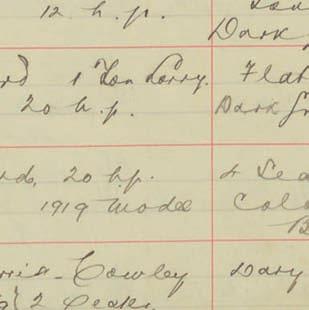 12 h.p.
Dark
rd 1 Ton Lorry. Flat
20 h.p. Dark Gr
rd, 20 h.p. 4 Sea
1919 Model Colo
B
rris-Cowley Dary
2 Seater